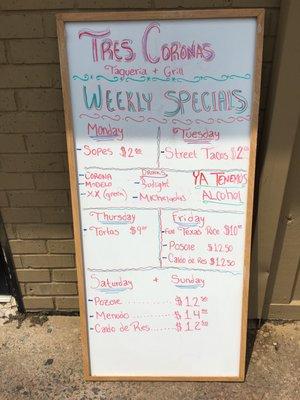 Tres Coronas
Taqueria + Grill
Weekly Specials
Monday
Tuesday
- Sopes $2.00
- Street Tacos $2.00
- Corona
Modelo
- XX (green)
Drinks
- Budlight
- Micheladas
YA Tenemos
Alcohol
Thursday
Friday
- Tortas $9.00
- Texas Rice $10.00
- Posole $12.50
- Caldo de Res $12.50
Saturday + Sunday
- Pozole ........ $12.50
- Menudo ........ $14.00
- Caldo de Res ...... $12.50